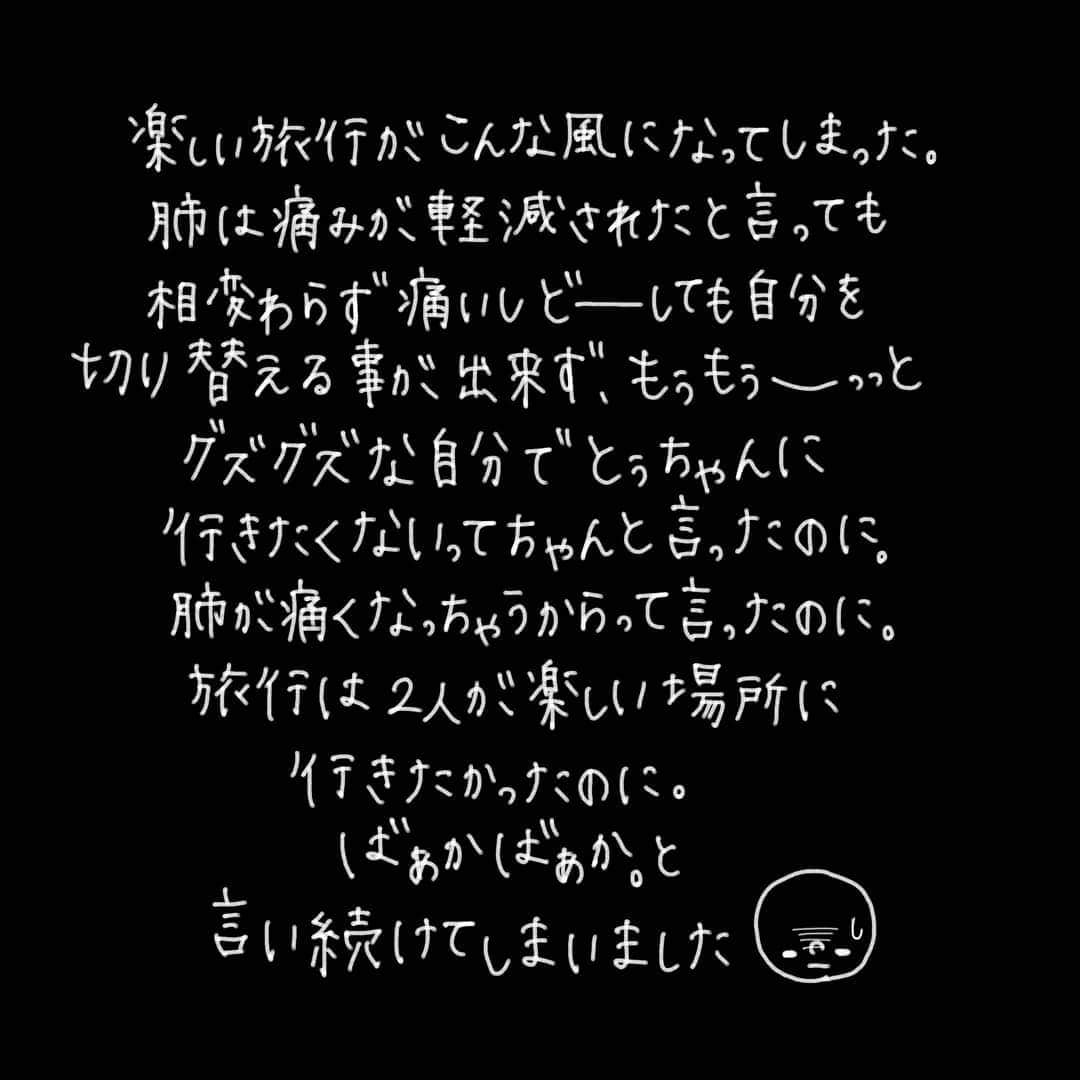 楽しい旅行がこんな風になってしまった。
肺は痛みが軽減されたと言っても
相変わらず痛いしどーーしても自分を
切り替える事が出来ず、もぅもぅ〜っっと
グズグズな自分でとぅちゃんに
行きたくないってちゃんと言ったのに。
肺が痛くなっちゃうからって言ったのに。
旅行は2人が楽しい場所に
行きたかったのに。
ばぁかばぁか。と
言い続けてしまいました